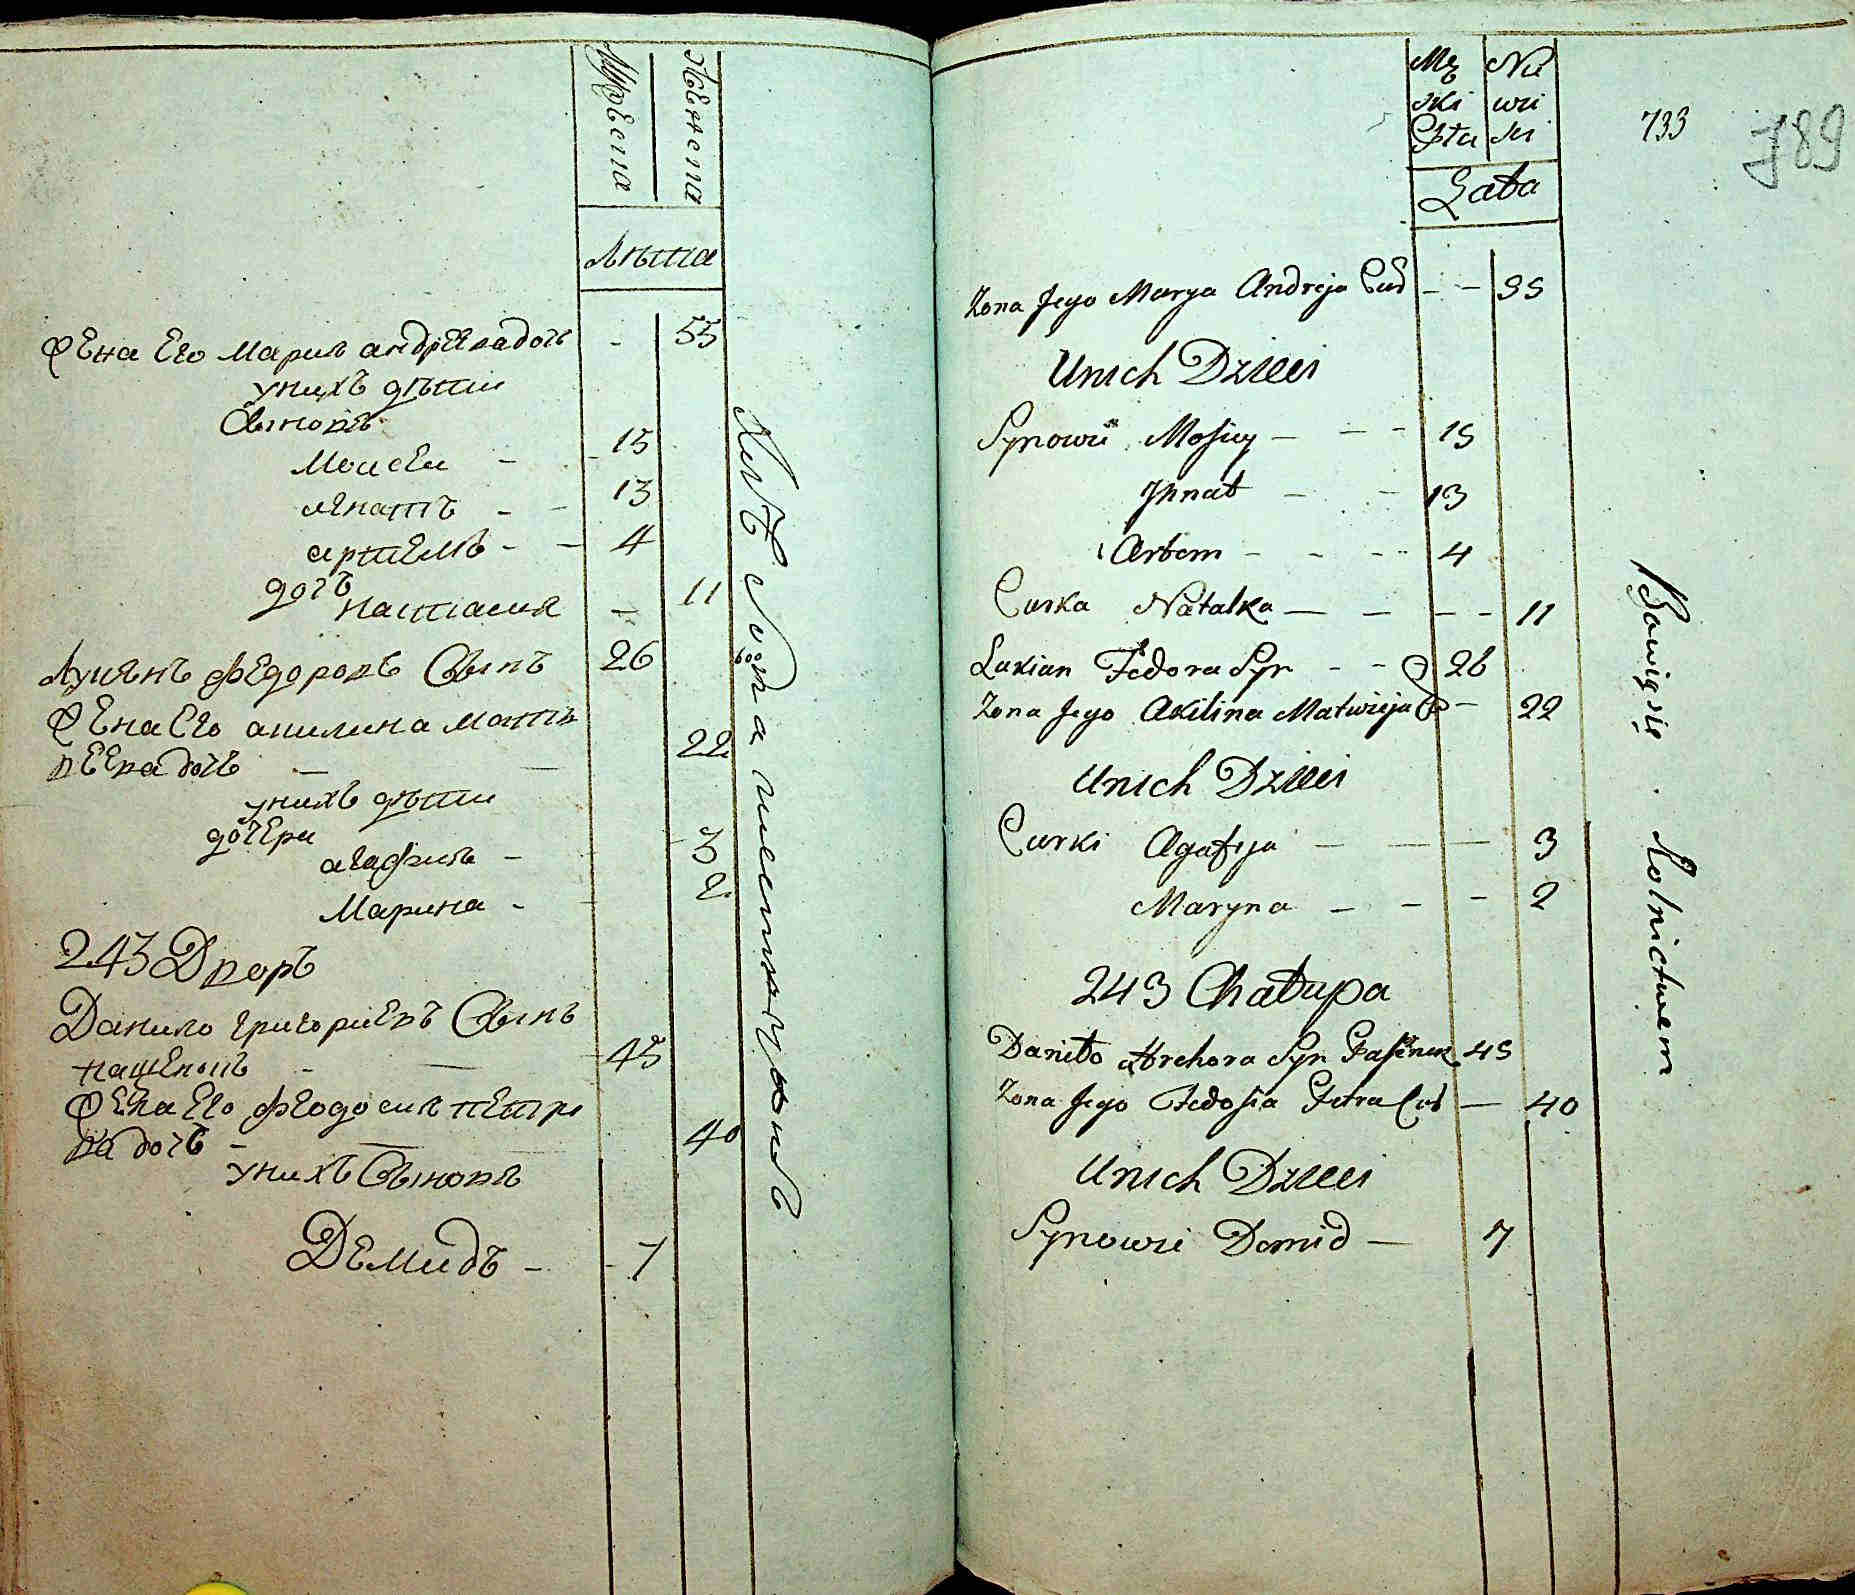 Мужеска
Женска
лѣта
Жена Его Мария андреева дочь - 55
у нихъ дѣти
Сыновѣ
Моисеи - 15
игнатъ - - 13
артемъ - - 4
дочь
настасия - 11
Лукянъ федоровъ Сынъ 26
Жена Его акилина матв
веева дочь — — 22
у нихъ дѣти
дочери
агафия - 3
Марина - - 2
243 Дворъ
Данило григориевъ Сынъ
пащенокъ - — 45
Жена Его феодосия петро
ва дочь - — 40
у нихъ Сыновѣ
Демидъ - - 7
Mę Nie
ski wie
Sta ści
Lata
733
789
Żona Jego Marya Andreja Cur - - 55
Unich Dzieci
Synowie Mosiey - - - 15
Ihnat - - 13
Artem - - - 4
Curka Natalka - - - - 11
Lukian Fedora Syn - - 26
Żona Jego Akilina Matwieja C - 22
Unich Dzieci
Curki Agafija - - - 3
Maryna - - - 2
243 Chałupa
Daniło Hrehora Syn Paszenek 45
Żona Jego Fedosia Petra Cur - 40
Unich Dzieci
Synowie Demid - 7
Bawią się Rolnictwem